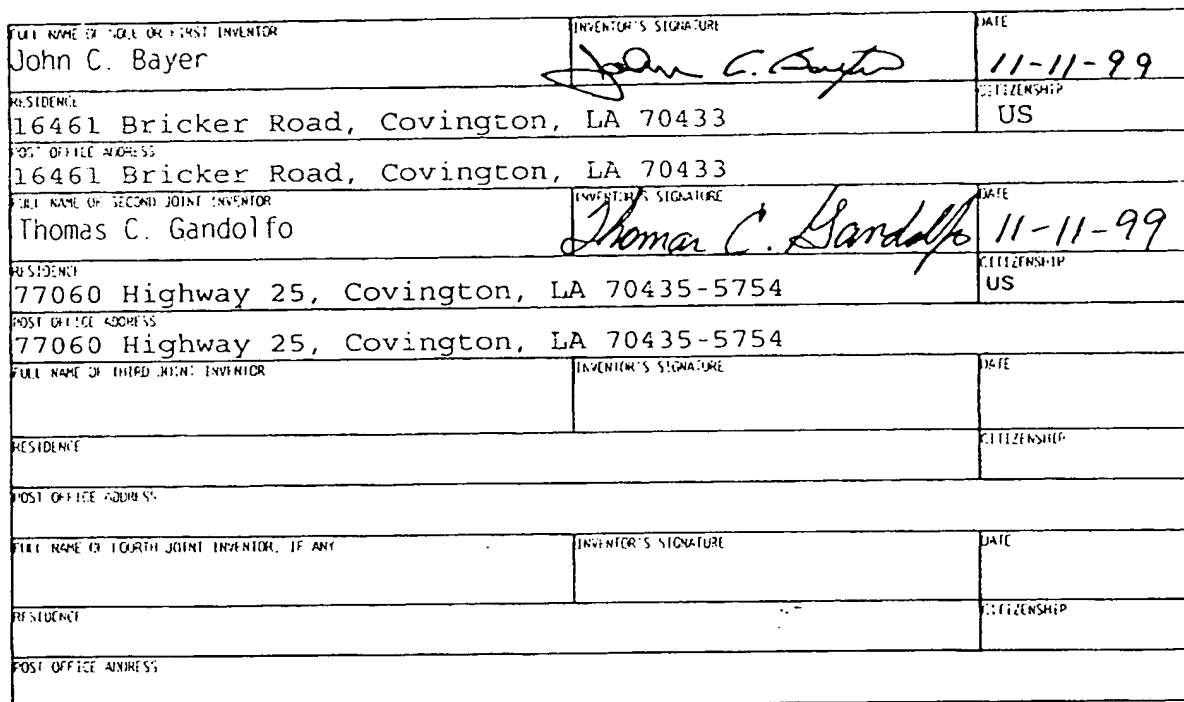 FULL NAME OF SOLE OR FIRST INVENTOR INVENTOR'S SIGNATURE DATE
John C. Bayer John C. Bayer 11-11-99
RESIDENCE CITIZENSHIP
16461 Bricker Road, Covington, LA 70433 US
POST OFFICE ADDRESS
16461 Bricker Road, Covington, LA 70433
FULL NAME OF SECOND JOINT INVENTOR INVENTOR'S SIGNATURE DATE
Thomas C. Gandolfo Thomas C. Gandolfo 11-11-99
RESIDENCE CITIZENSHIP
77060 Highway 25, Covington, LA 70435-5754 US
POST OFFICE ADDRESS
77060 Highway 25, Covington, LA 70435-5754
FULL NAME OF THIRD JOINT INVENTOR INVENTOR'S SIGNATURE DATE
RESIDENCE CITIZENSHIP
POST OFFICE ADDRESS
FULL NAME OF FOURTH JOINT INVENTOR, IF ANY INVENTOR'S SIGNATURE DATE
RESIDENCE CITIZENSHIP
POST OFFICE ADDRESS